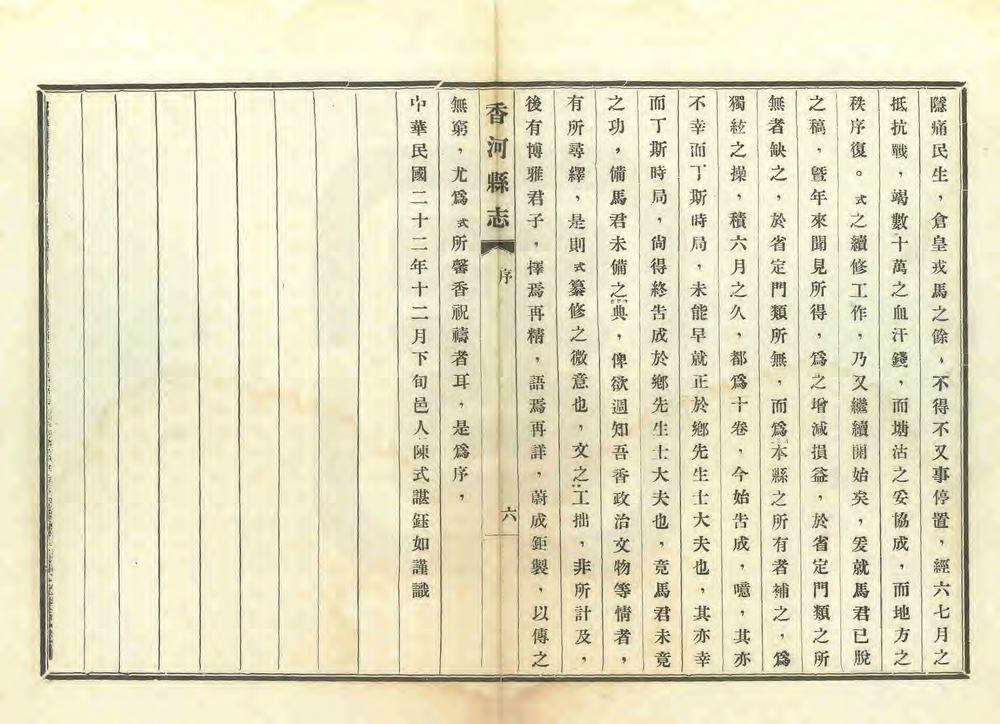 隱痛民生，倉皇戎馬之餘，不得不又事停置，經六七月之
抵抗戰，竭數十萬之血汗錢，而塘沽之妥協成，而地方之
秩序復。式之續修工作，乃又繼續開始矣，爰就馬君已脫
之稿，曁年來聞見所得，爲之增減損益，於省定門類之所
無者缺之，於省定門類所無，而爲本縣之所有者補之，爲
獨絃之操，積六月之久，都爲十卷，今始告成，噫，其亦
不幸而丁斯時局，未能早就正於鄉先生士大夫也，其亦幸
而丁斯時局，尙得終告成於鄉先生士大夫也，竟馬君未竟
之功，備馬君未備之典，俾欲週知吾香政治文物等情者，
有所尋繹，是則式纂修之微意也，文之工拙，非所計及，
後有博雅君子，擇焉再精，語焉再詳，蔚成鉅製，以傳之
香河縣志 序 六
無窮，尤爲式所馨香祝禱者耳，是爲序，
中華民國二十二年十二月下旬邑人陳式諶鈺如謹識